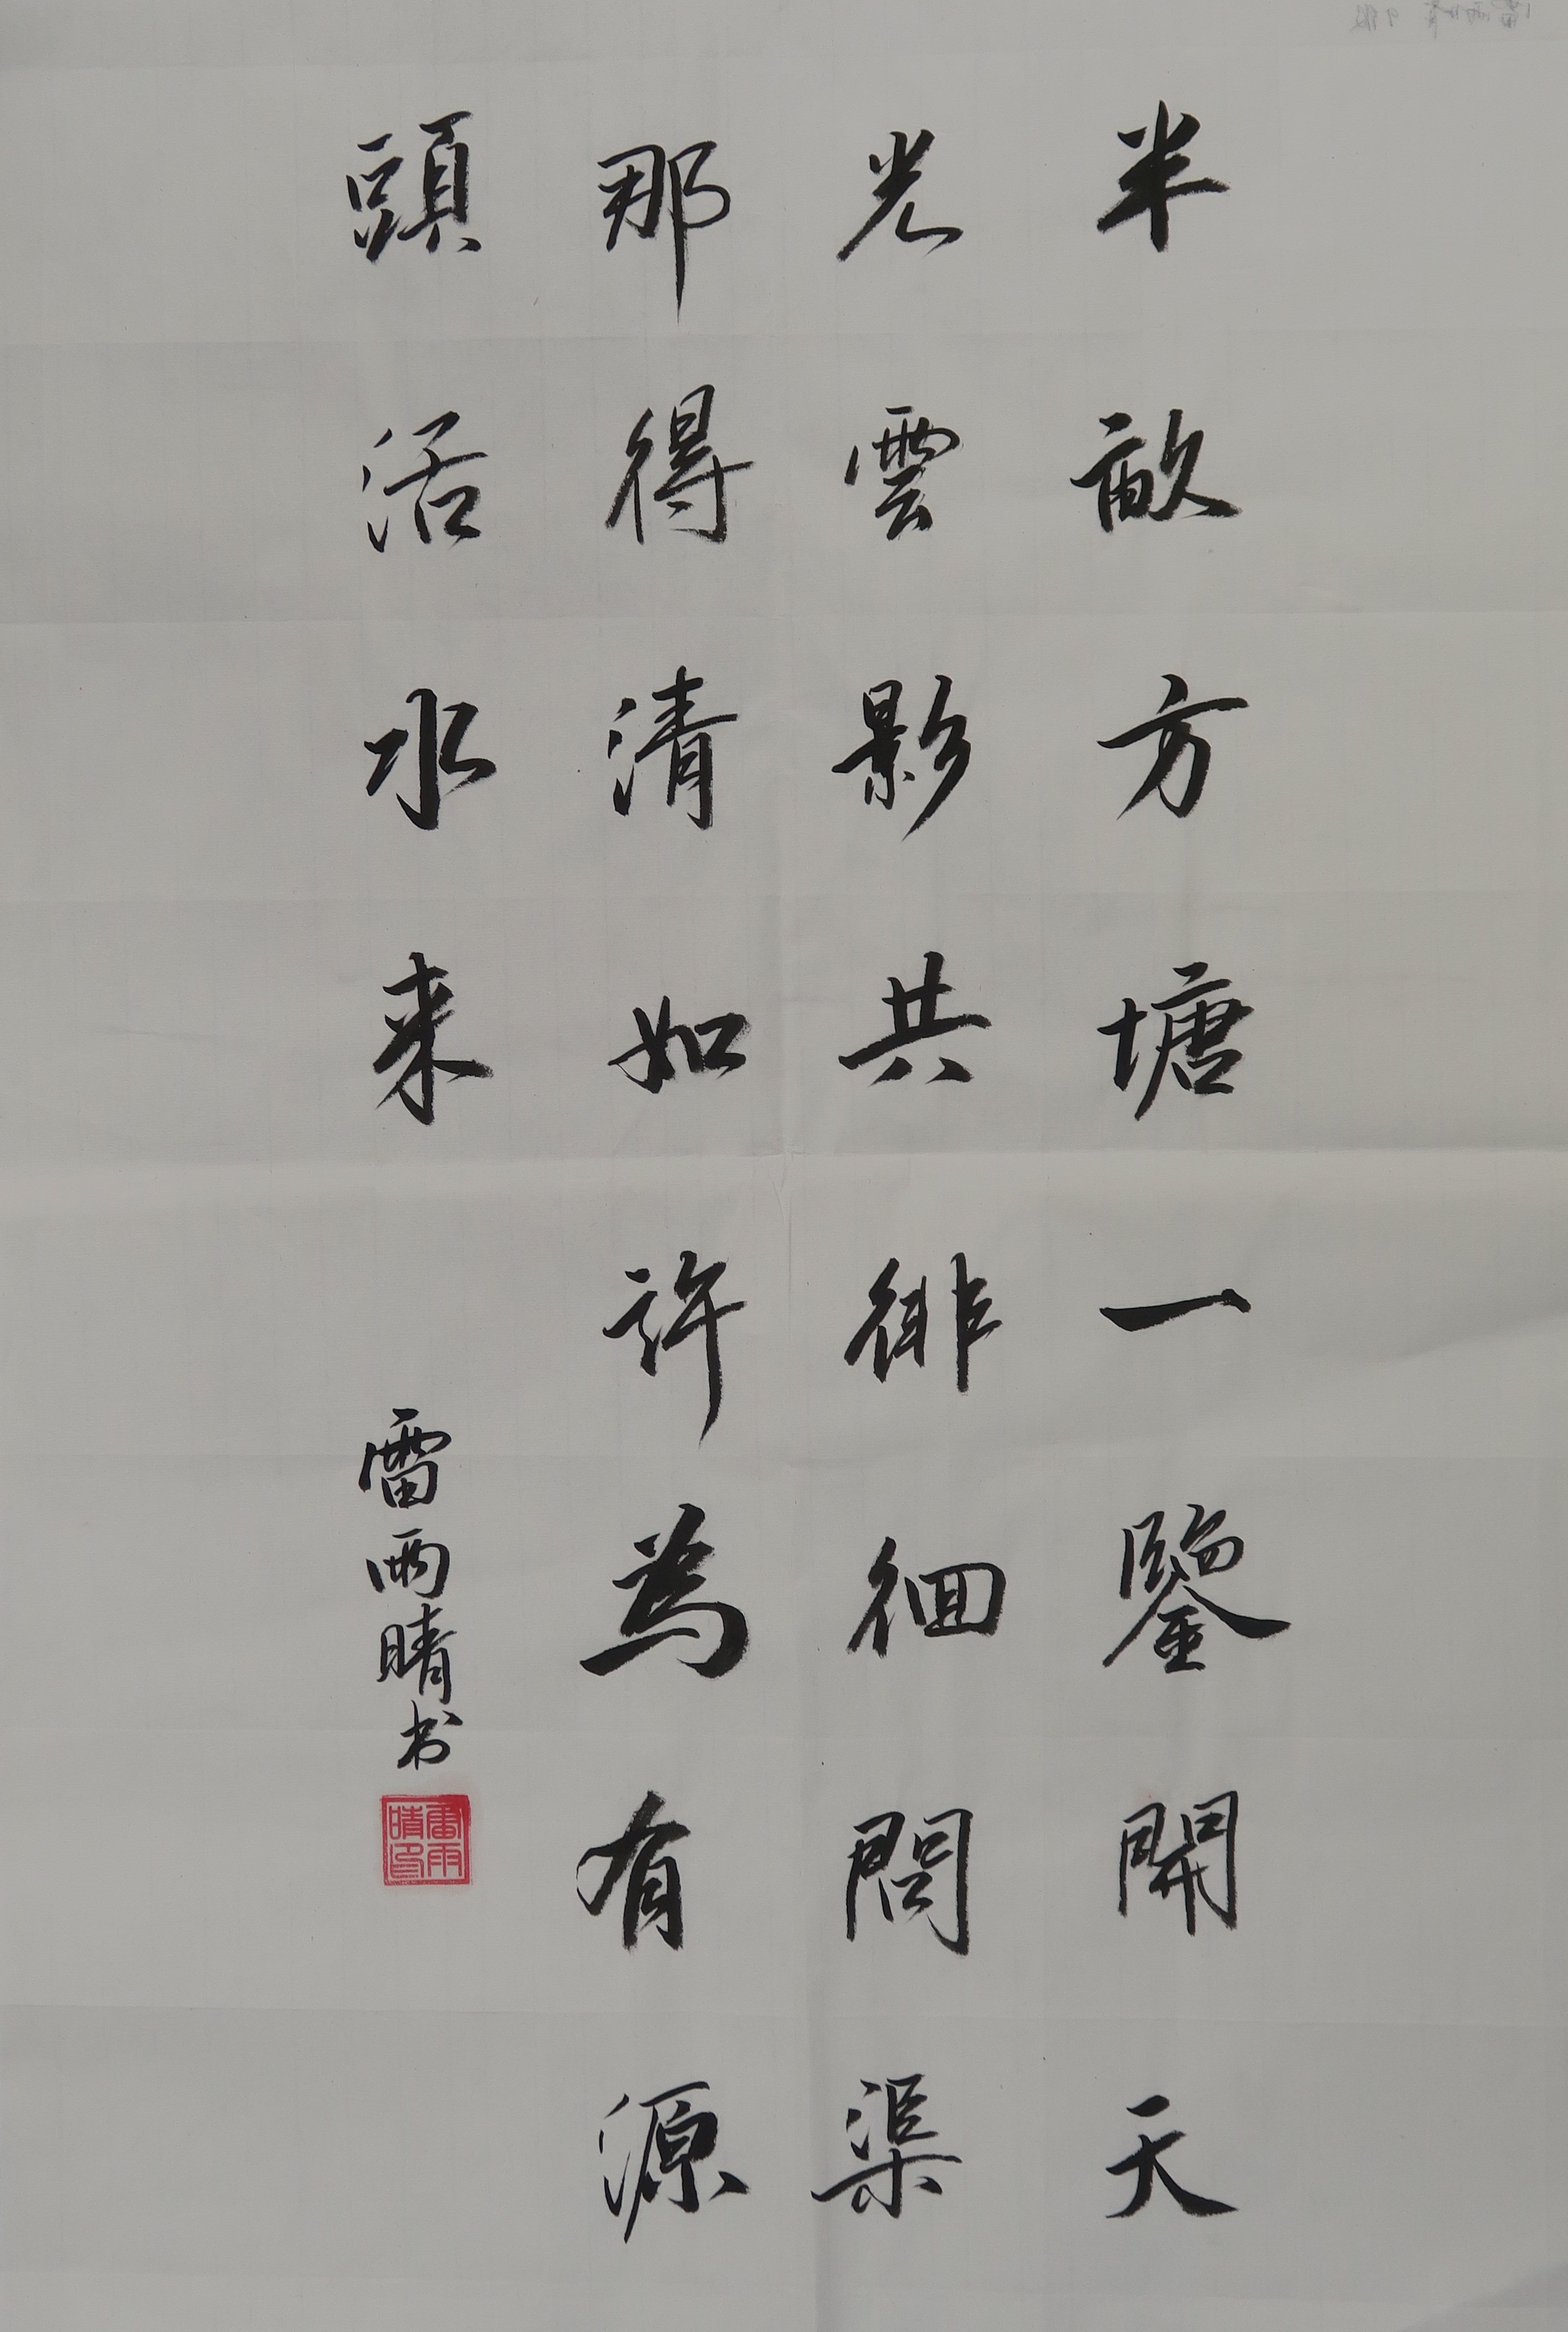 半畝方塘一鑒開天
光雲影共徘徊問渠
那得清如許為有源
頭活水来
雷雨晴书
雷雨晴印